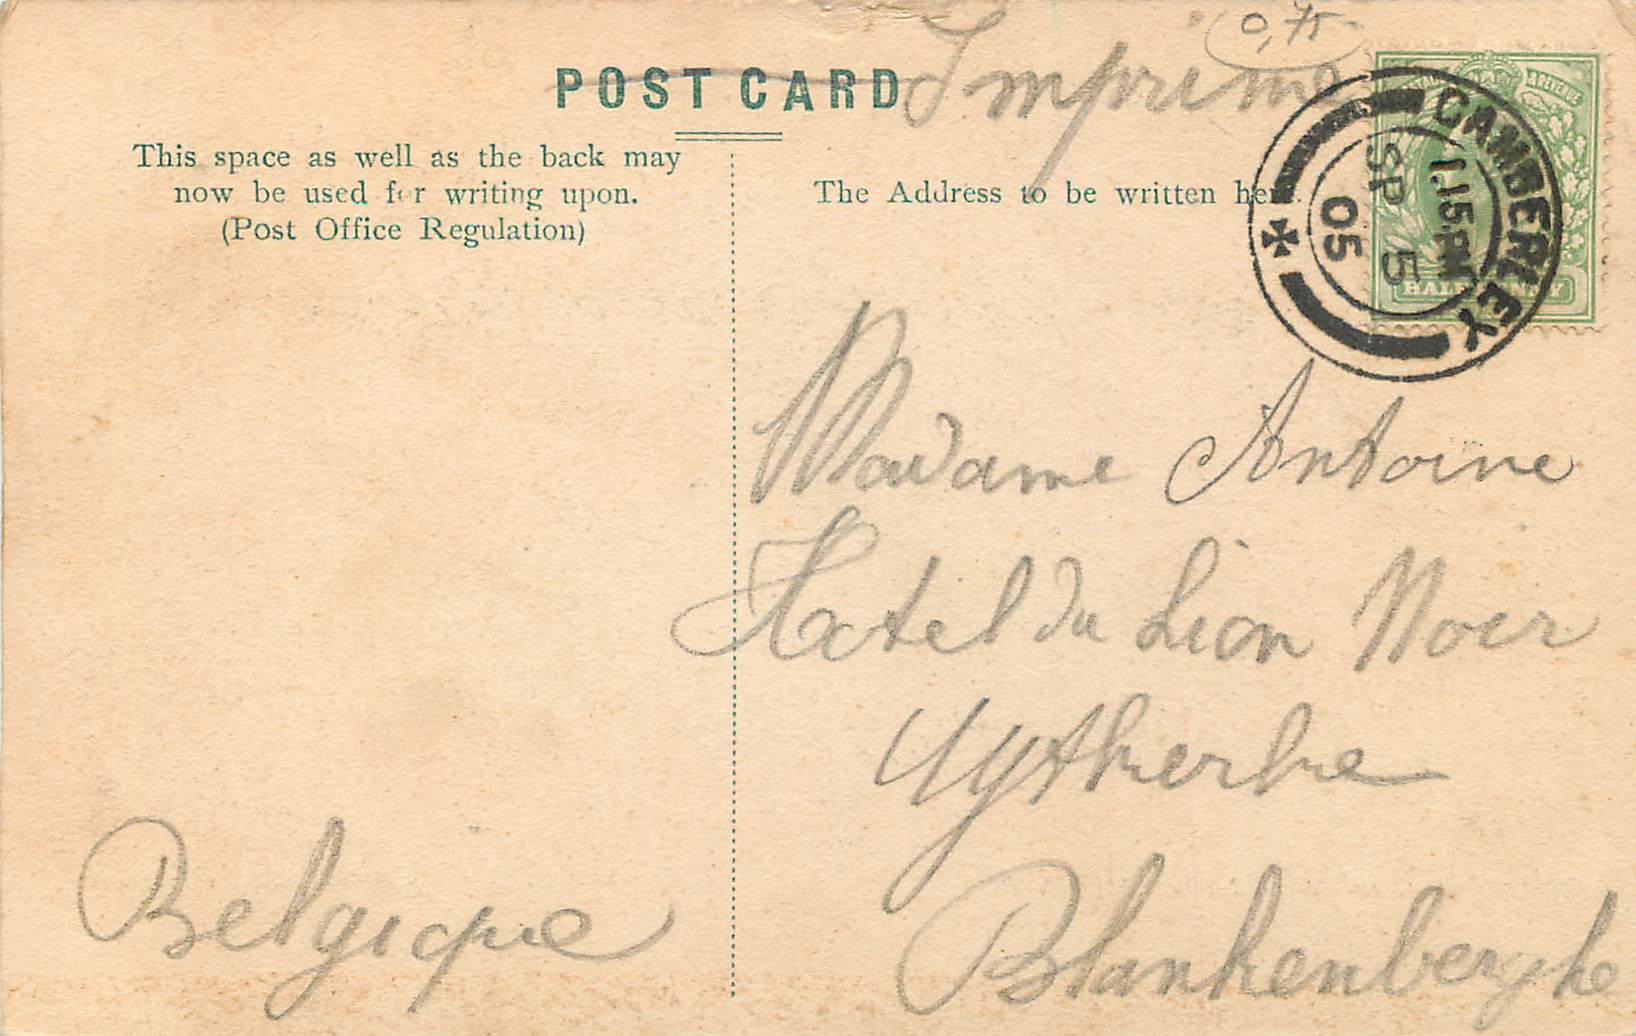 0,75
POST CARD Imprimé
This space as well as the back may
now be used for writing upon.
(Post Office Regulation)
The Address to be written here.
CAMBERLEY
11.15 AM
SP 5
05
REVENUE
HALFPENNY
Madame Antoine
Hotel du Lion Noir
Uytkerke
Blankenberghe
Belgique